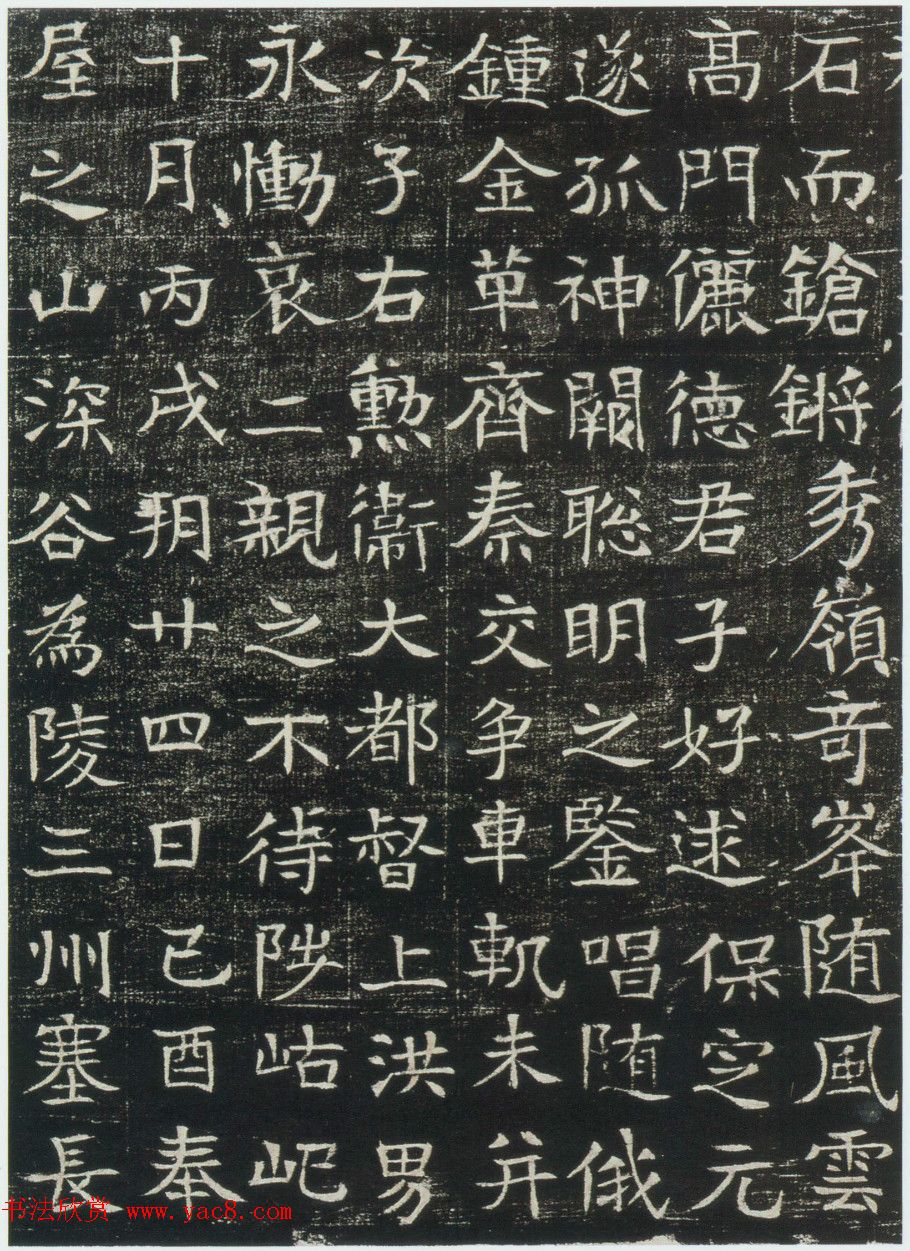 石而鎗鏘秀嶺奇峯随風雲
髙門儷德君子好逑保定元
遂孤神闕聡明之鑒唱随俄
鍾金革齊秦交争車軌未并
次子右勲衛大都督上洪男
永慟哀二親之不待陟岵屺
十月丙戌朔廿四日己酉奉
屋之山深谷為陵三州塞長
书法欣赏 www.yac8.com